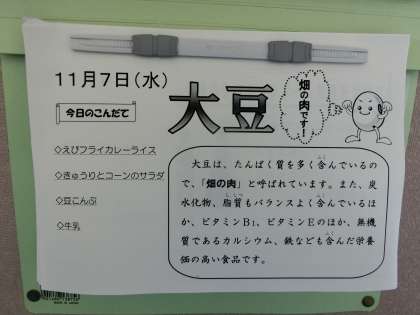 11月7日(水)
大豆
畑の肉です!
今日のこんだて
◇えびフライカレーライス
◇きゅうりとコーンのサラダ
◇豆こんぶ
◇牛乳
大豆は、たんぱく質を多く含んでいるの
で、「畑の肉」と呼ばれています。また、炭
水化物、脂質もバランスよく含んでいるほ
か、ビタミンB₁、ビタミンEのほか、無機
質であるカルシウム、鉄なども含んだ栄養
価の高い食品です。